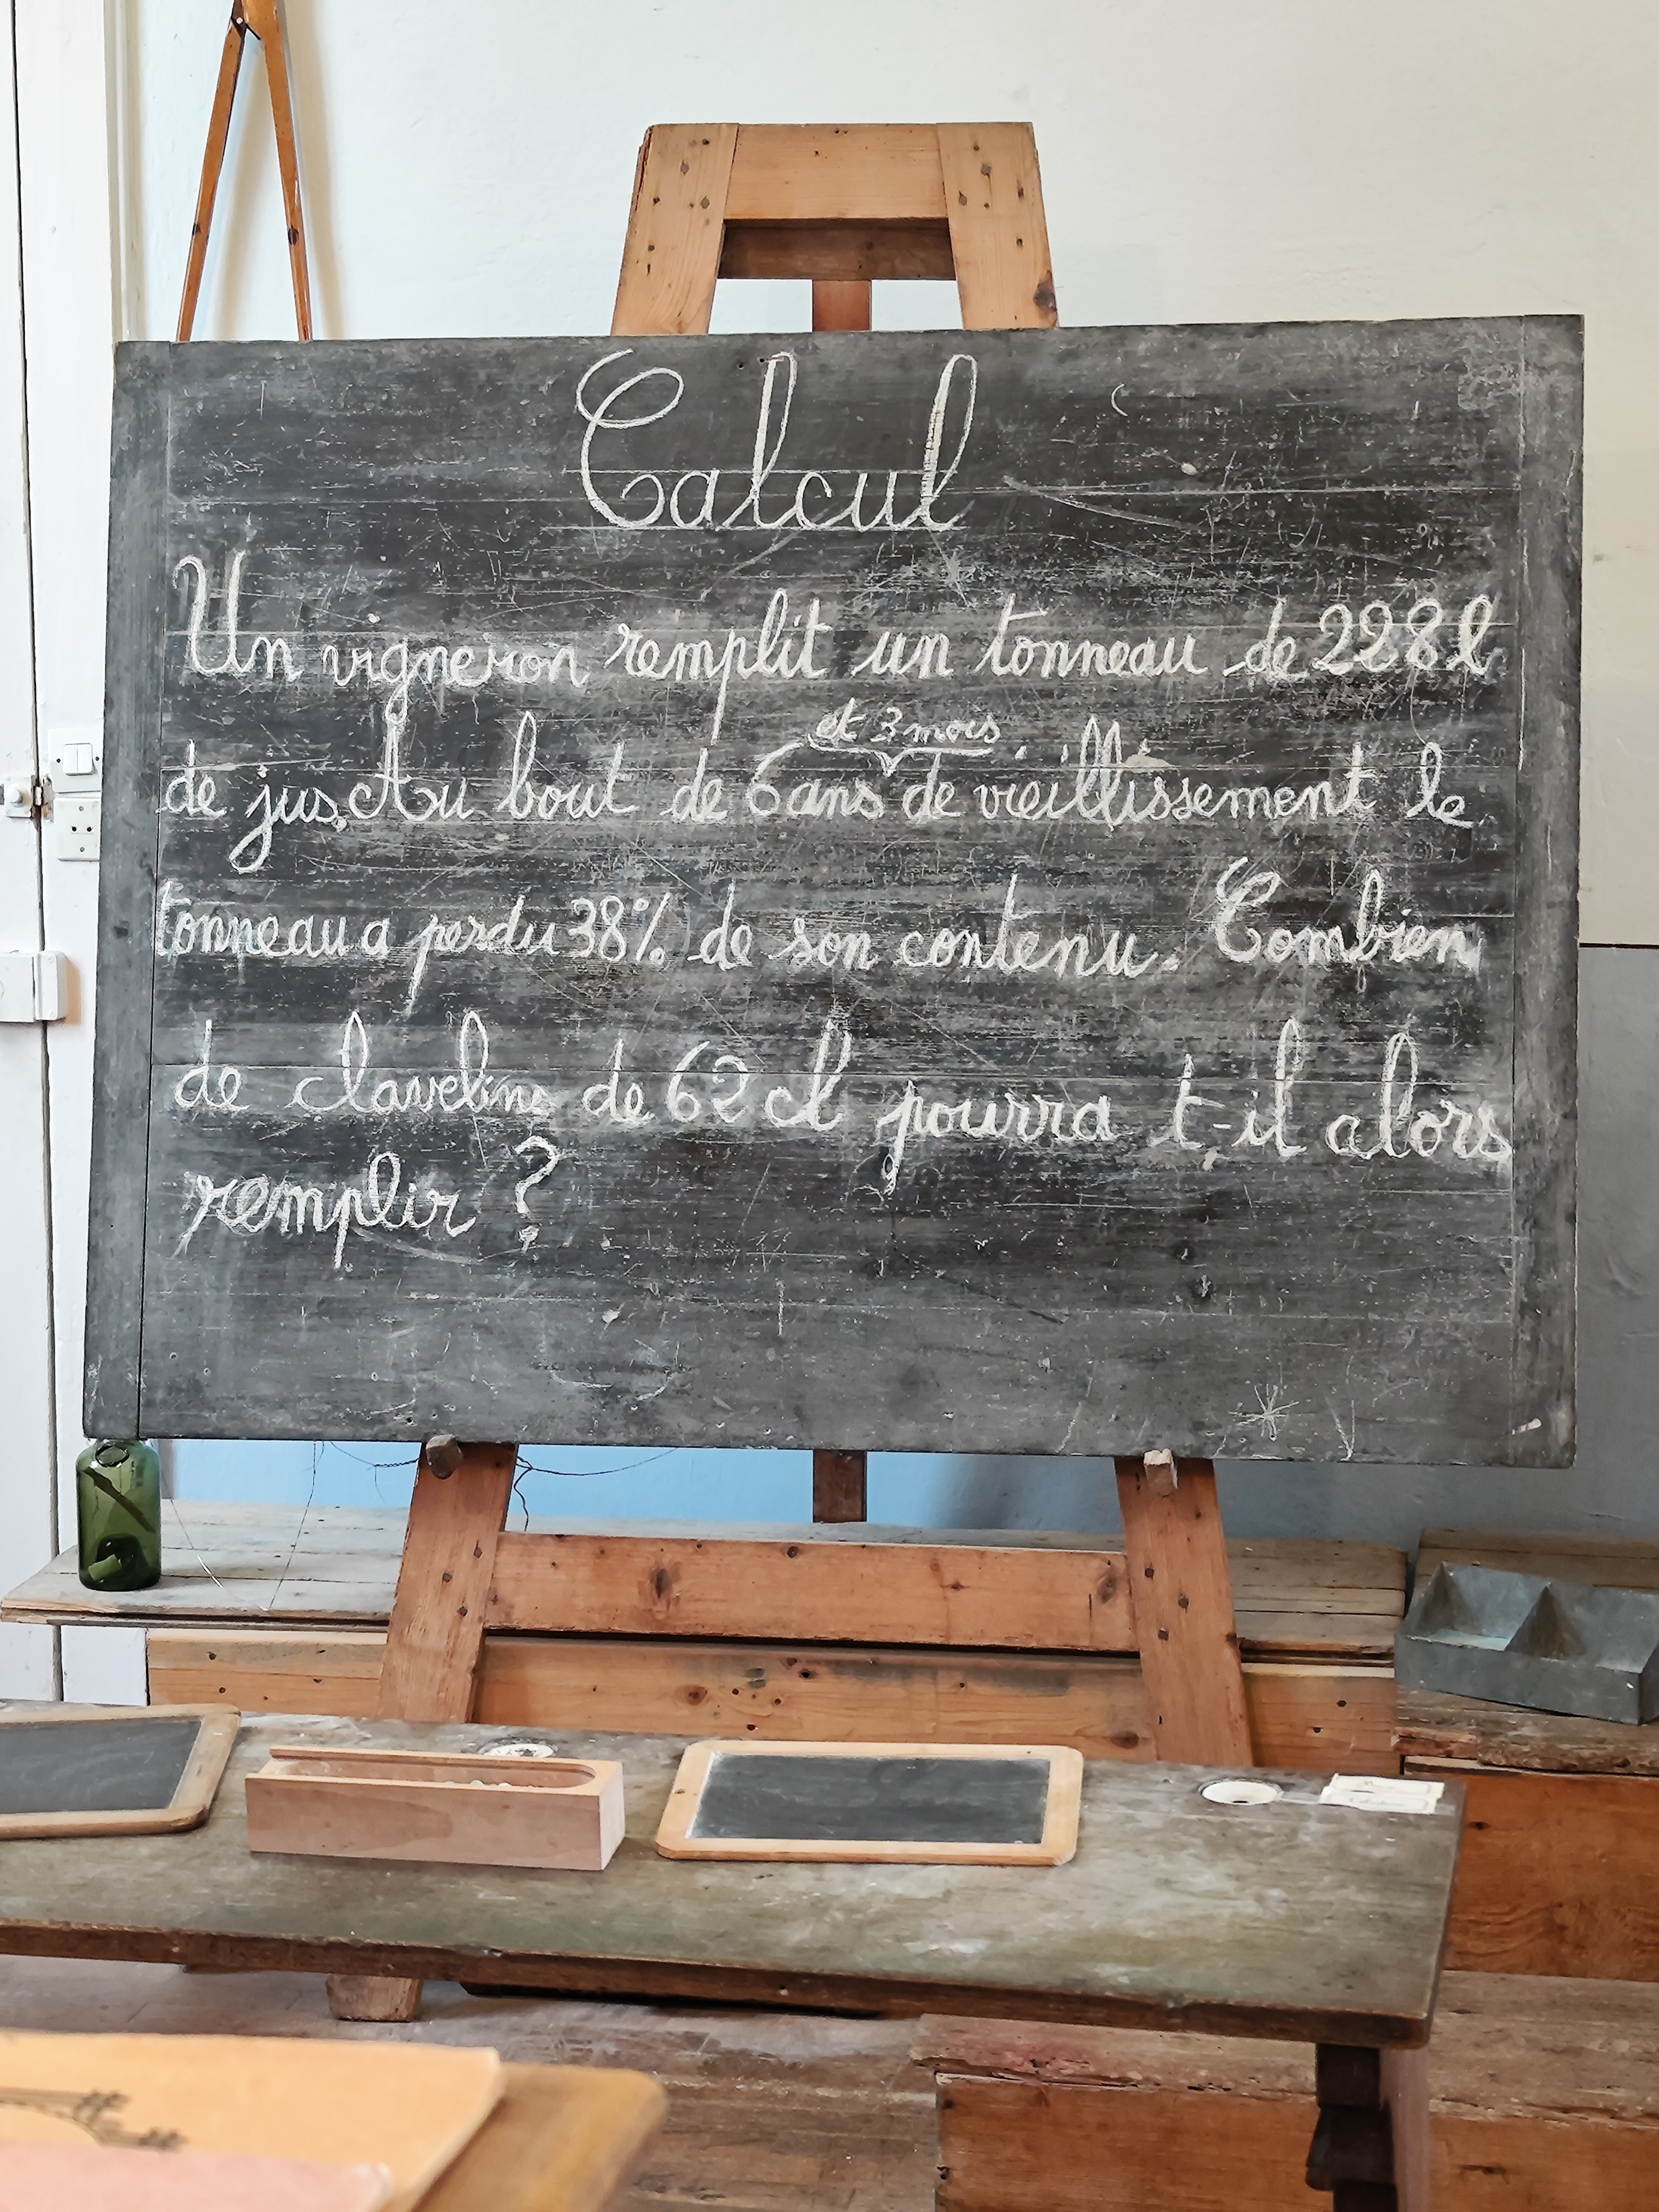 Calcul
Un vigneron remplit un tonneau de 228 l
et 3 mois
de jus. Au bout de 6 ans de vieillissement le
tonneau a perdu 38% de son contenu. Combien
de clavelins de 62 cl pourra t-il alors
remplir ?